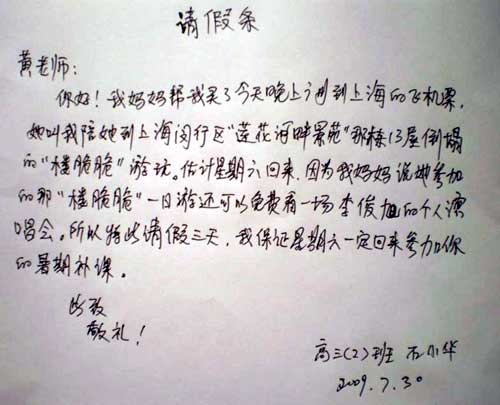 请假条
黄老师:
你好！我妈妈帮我买了今天晚上广州到上海的飞机票,
她叫我陪她到上海闵行区"莲花河畔景苑"那栋13层倒塌
的"楼脆脆"游玩。估计星期六回来,因为我妈妈说她参加
的那"楼脆脆"一日游还可以免费看一场李俊旭的个人演
唱会。所以特此请假三天,我保证星期六一定回来参加你
的暑期补课。
此致
敬礼！
高三(2)班 石小华
2009.7.30